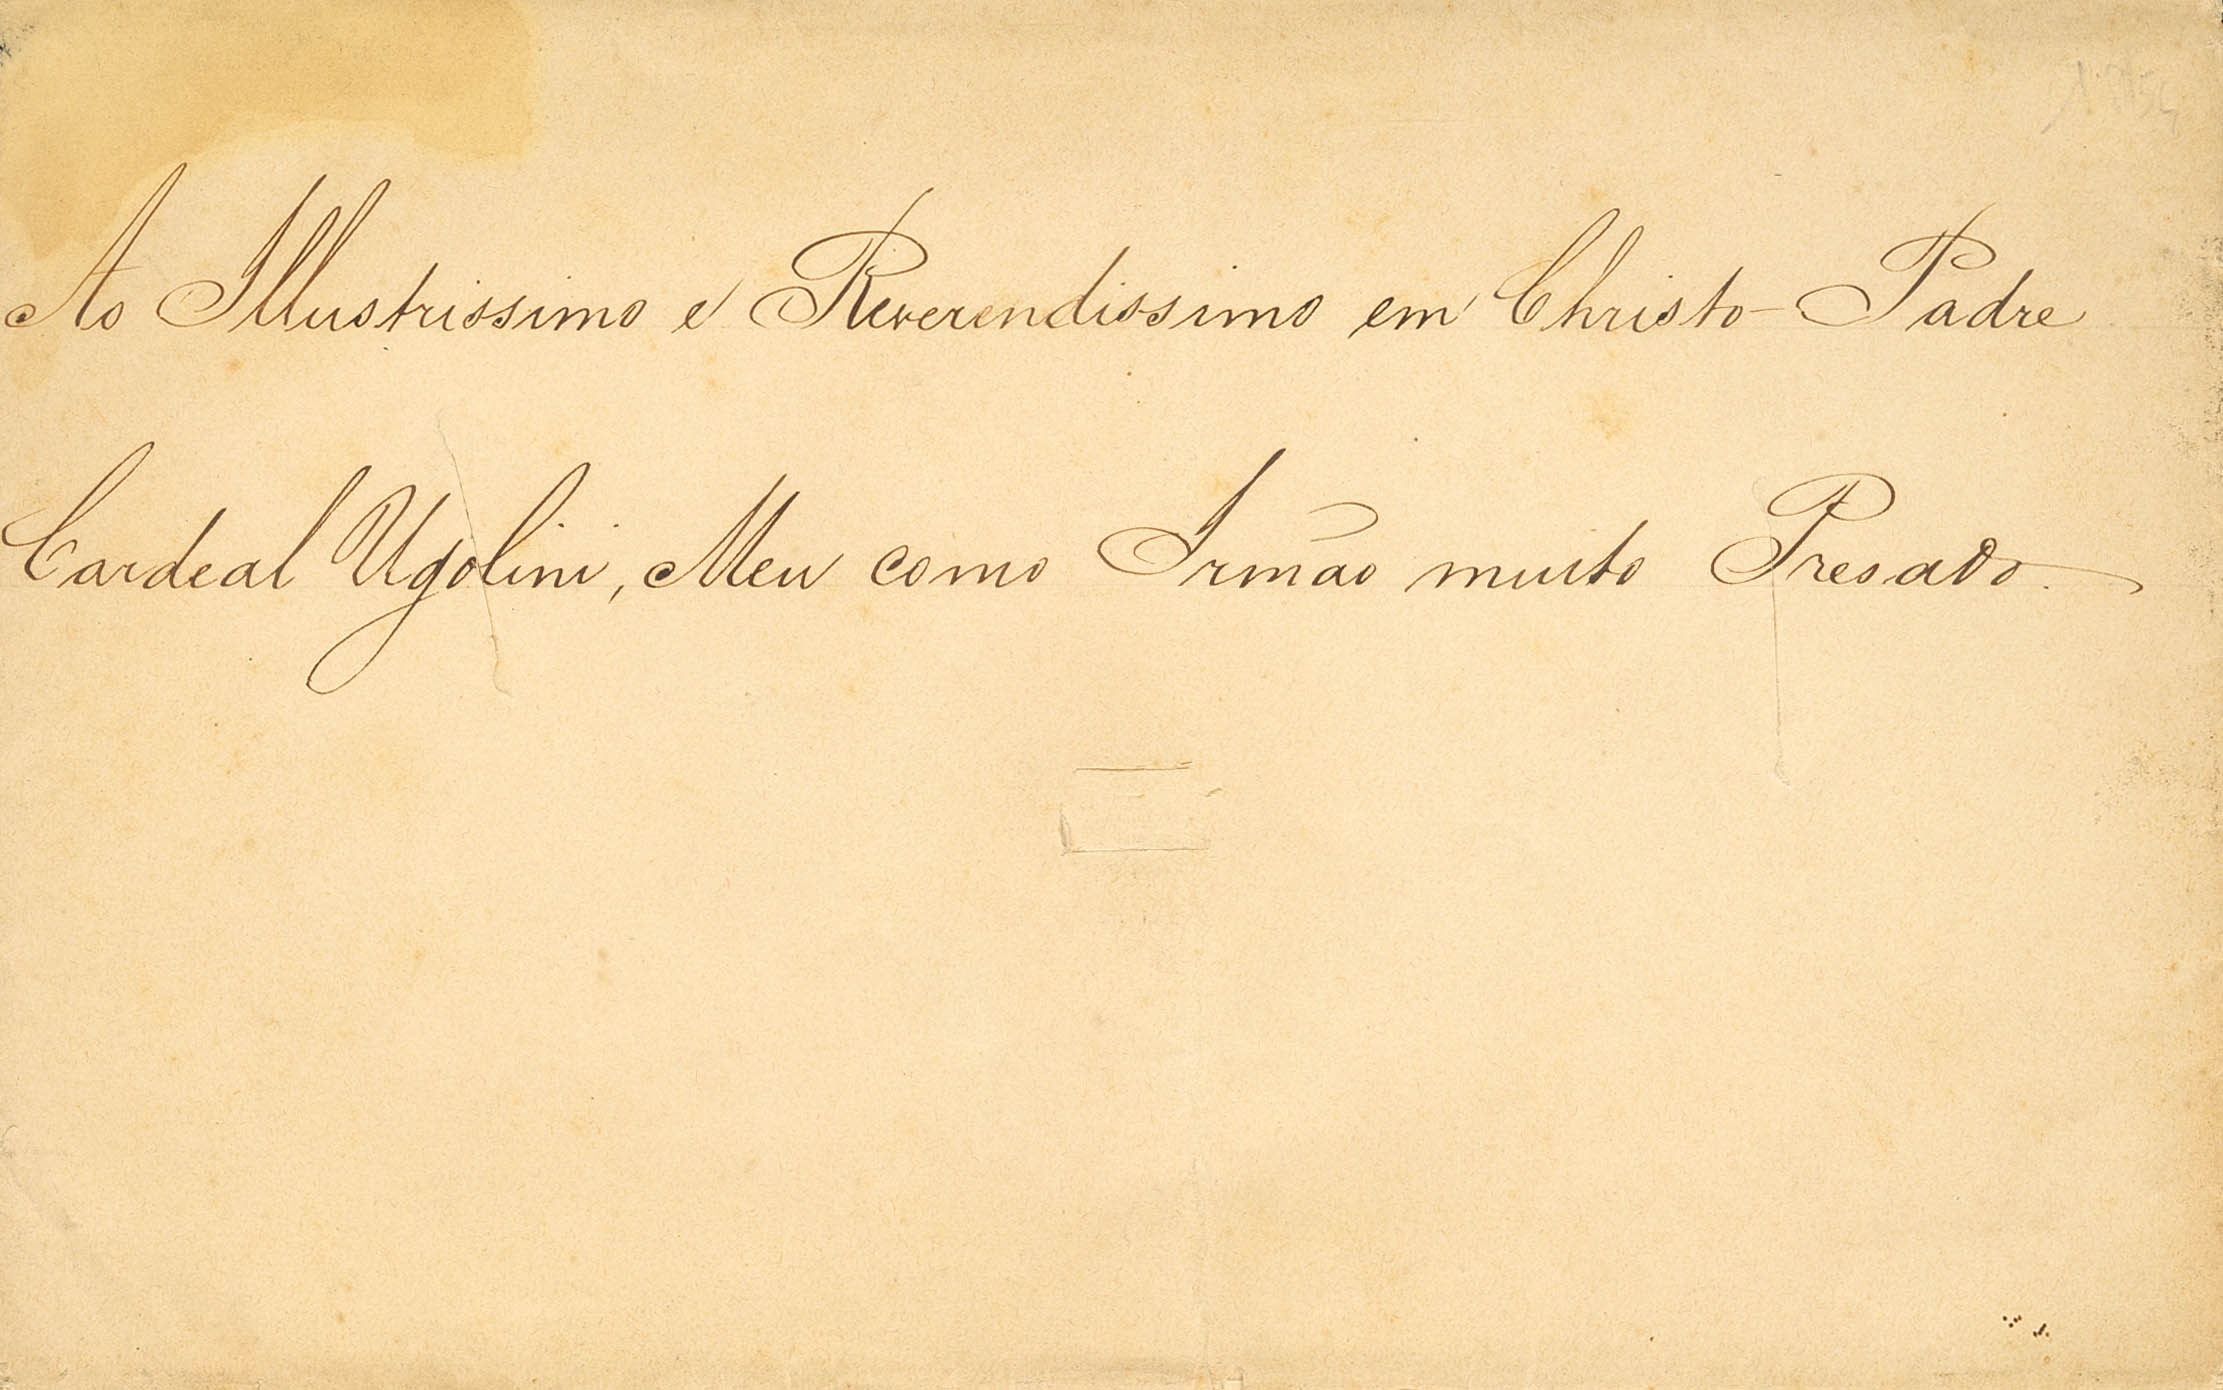 Ao Illustrissimo e Reverendissimo em Christo Padre
Cardeal Ugolini, Meu como Irmão muito Presado.